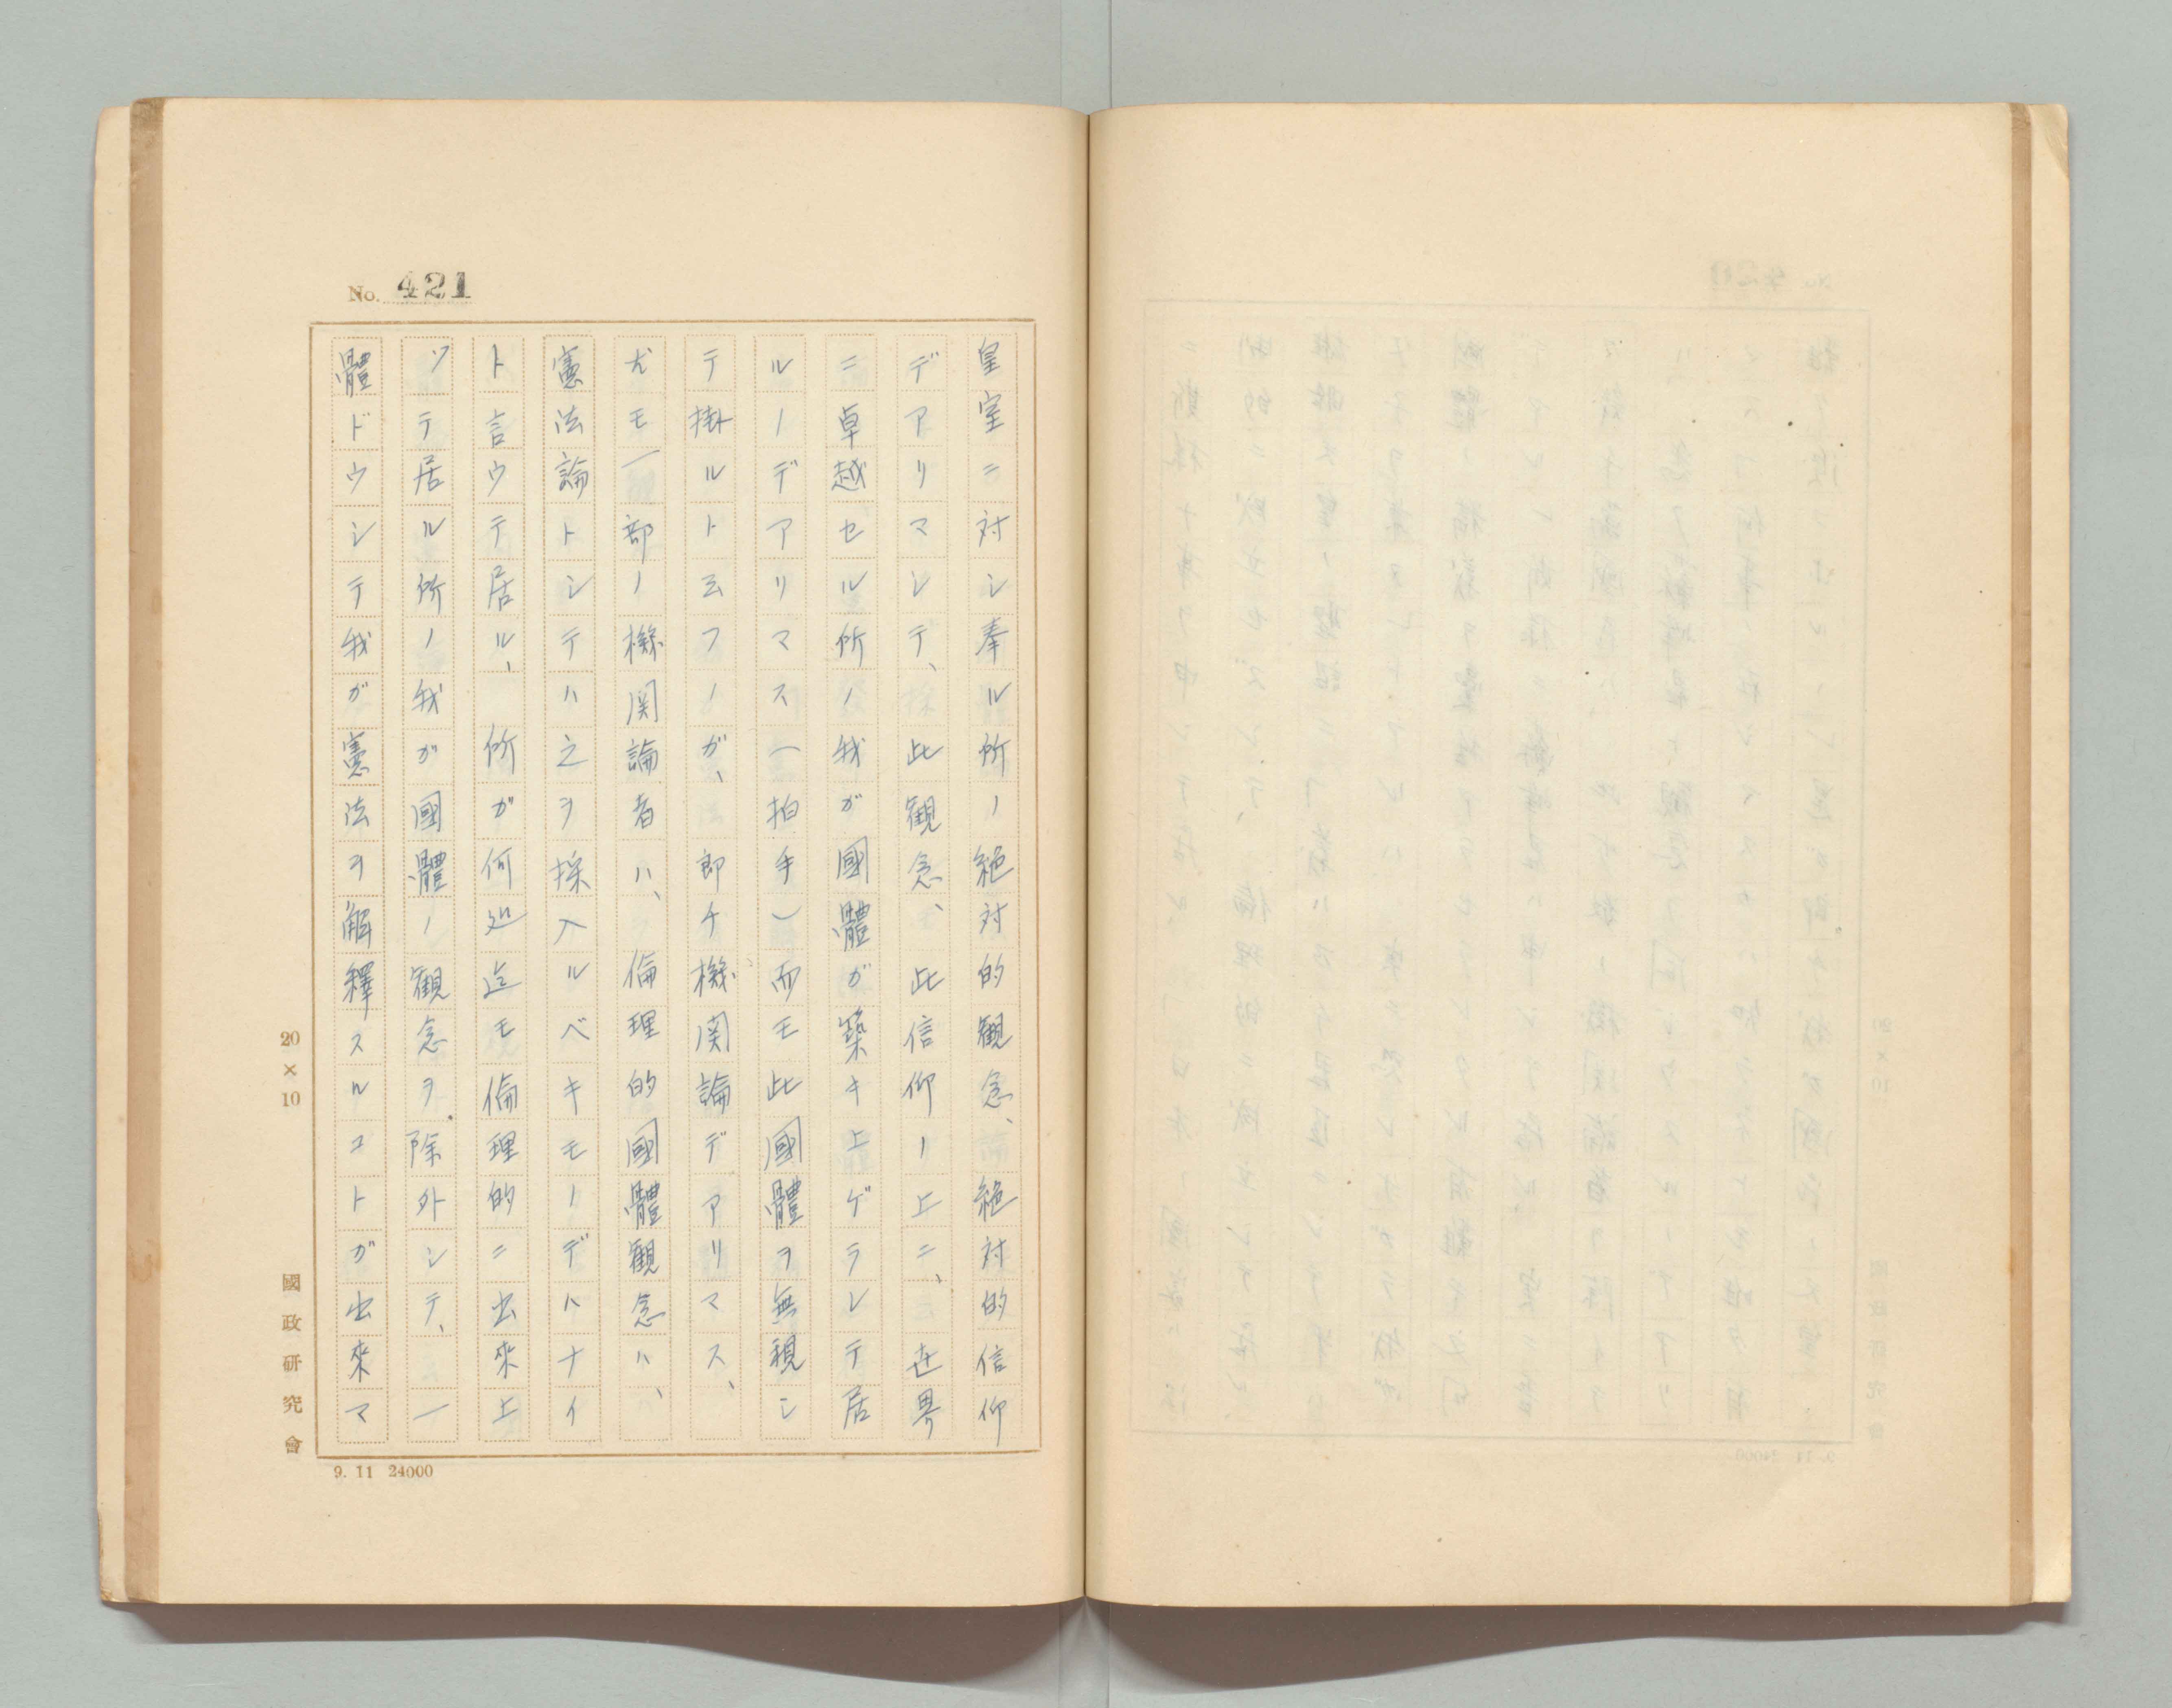 No. 421
皇室ニ対シ奉ル所ノ絶対的観念、絶対的信仰
デアリマシテ、此観念、此信仰ノ上ニ、世界
ニ卓越セル所ノ我ガ國體ガ築キ上ゲラレテ居
ルノデアリマス(拍手)而モ此國體ヲ無視シ
テ掛ルト云フノガ、即チ機関論デアリマス、
尤モ一部ノ機関論者ハ、倫理的國體観念ハ、
憲法論トシテハ之ヲ採入ルベキモノデハナイ
ト言ウテ居ル、所ガ何処迄モ倫理的ニ出来上
ツテ居ル所ノ我ガ國體ノ観念ヲ除外シテ、一
體ドウシテ我ガ憲法ヲ解釋スルコトガ出来マ
20×10
國政研究會
9. 11 24000